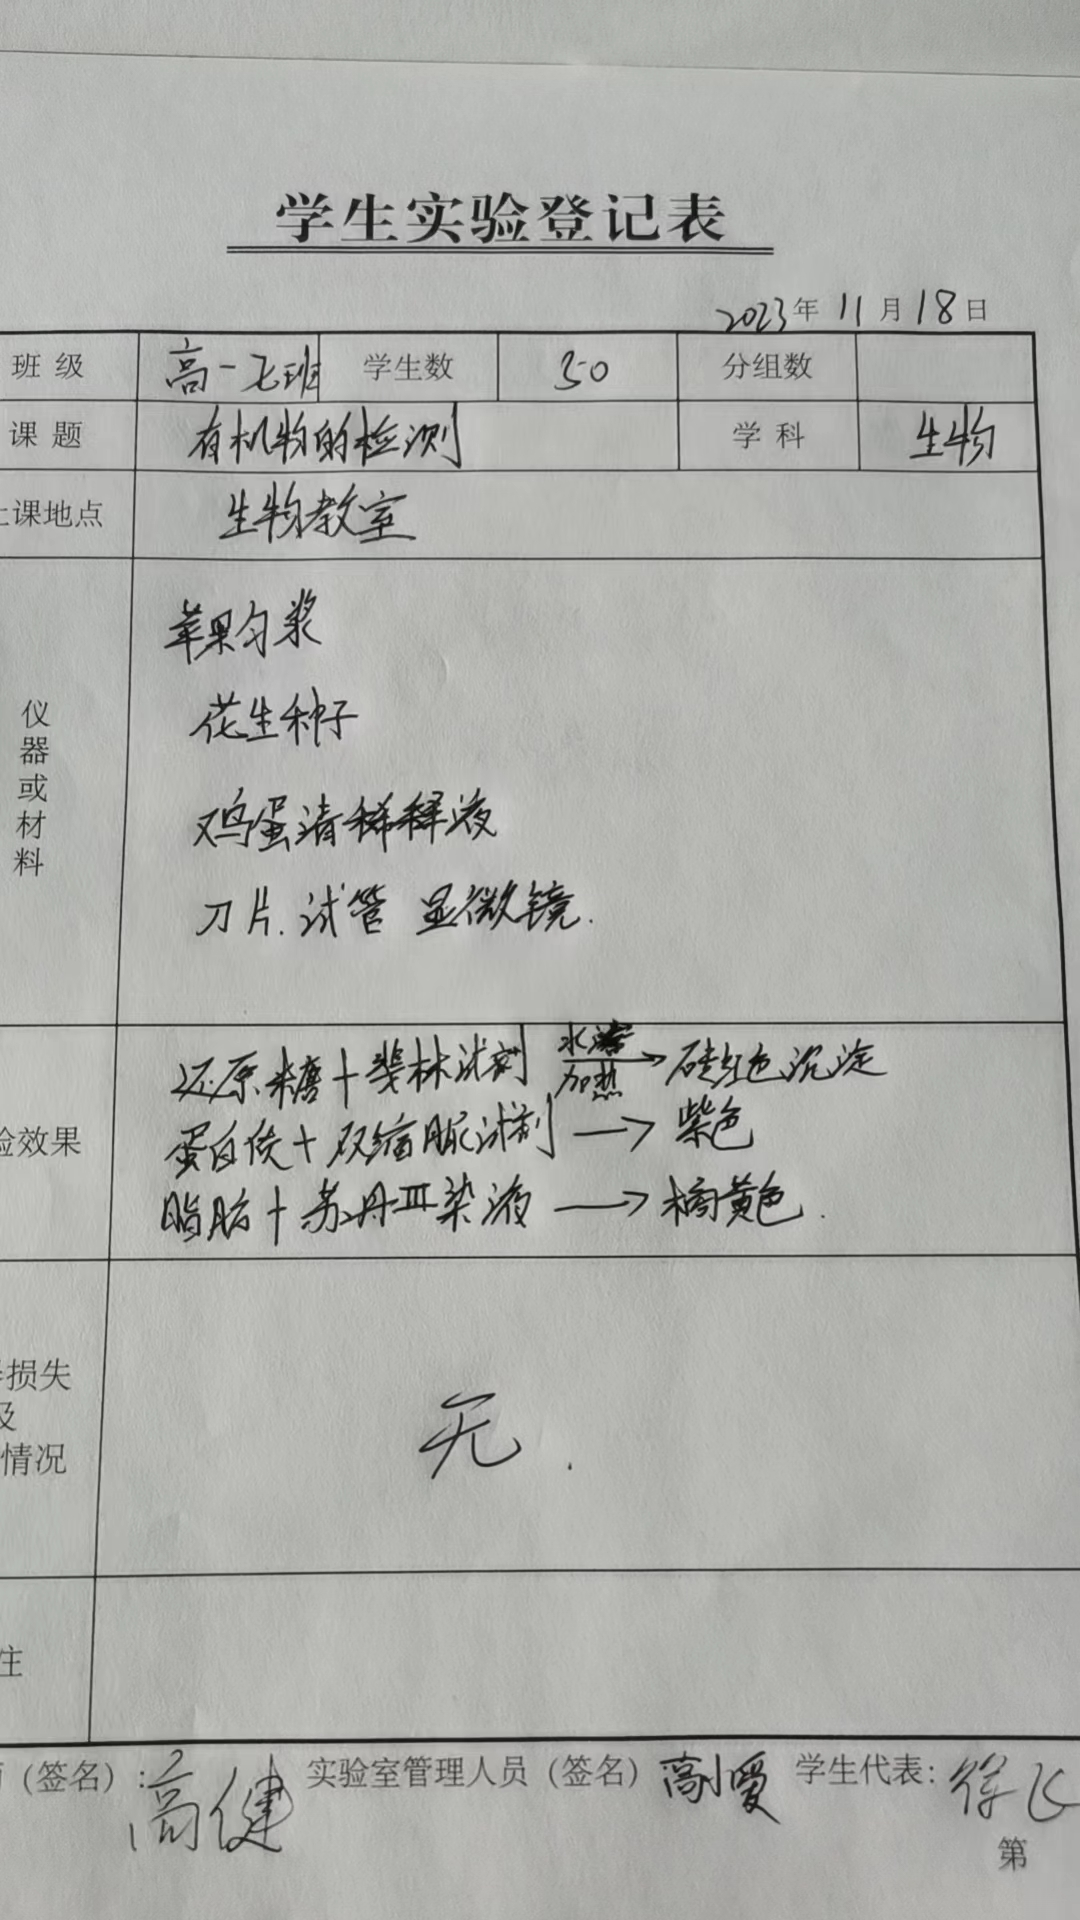 学生实验登记表
2023年11月18日
班级 高一七班 学生数 50 分组数
课题 有机物的检测 学科 生物
上课地点 生物教室
仪器或材料
苹果匀浆
花生种子
鸡蛋清稀释液
刀片.试管 显微镜.
验效果
还原糖+斐林试剂 水浴加热→砖红色沉淀
蛋白质+双缩脲试剂→紫色
脂肪+苏丹III染液→橘黄色.
损失
及
情况
无.
注
(签名):高健 实验室管理人员(签名) 高小爱 学生代表:徐飞
第